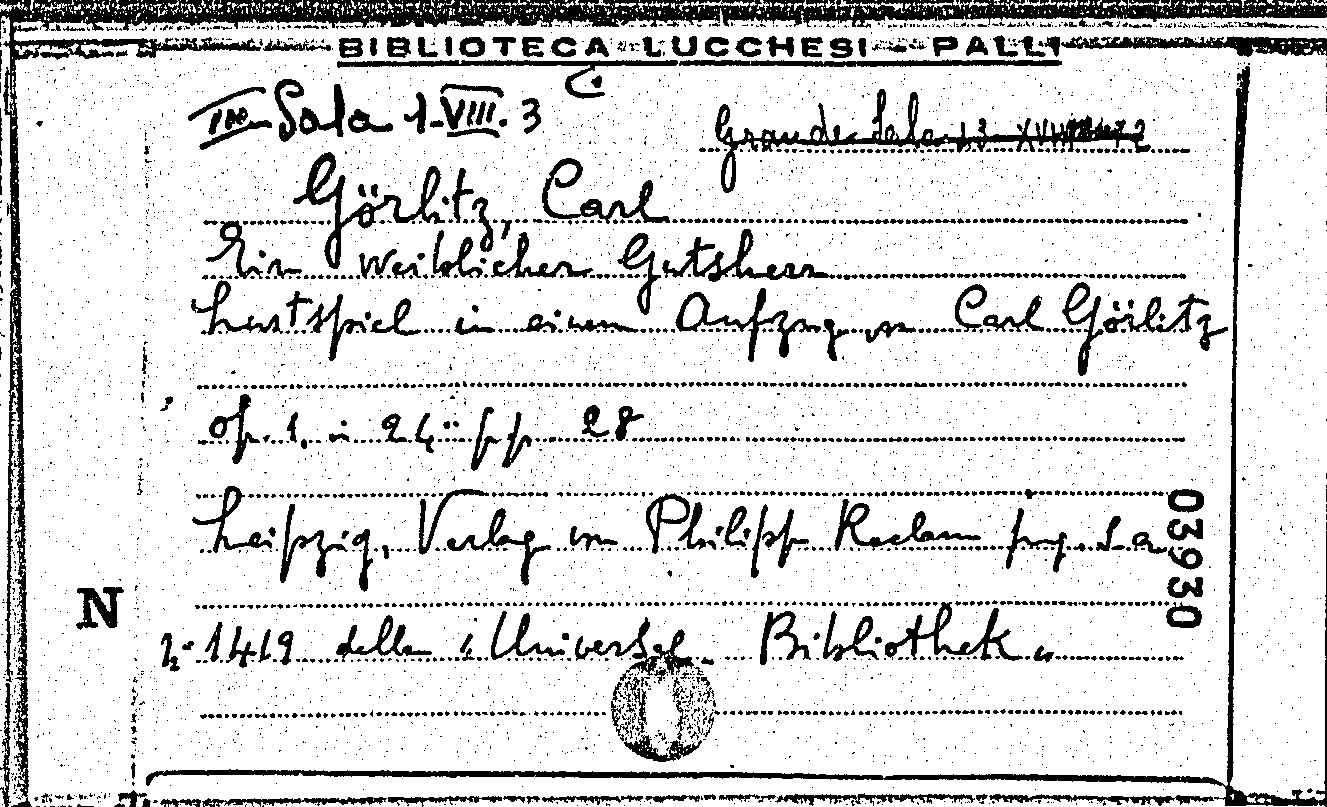 BIBLIOTECA LUCCHESI - PALLI
IIIa Sala 1-VIII. 3
Grande Sala 13 XVI
Görlitz, Carl
Ein weiblicher Gutsherr
Lustspiel in einem Aufzug von Carl Görlitz
op. 1. in 24º pp. 28
Leipzig, Verlag von Philipp Reclam jung. S. a.
n. 1419 della "Universal-Bibliothek"
N
03930